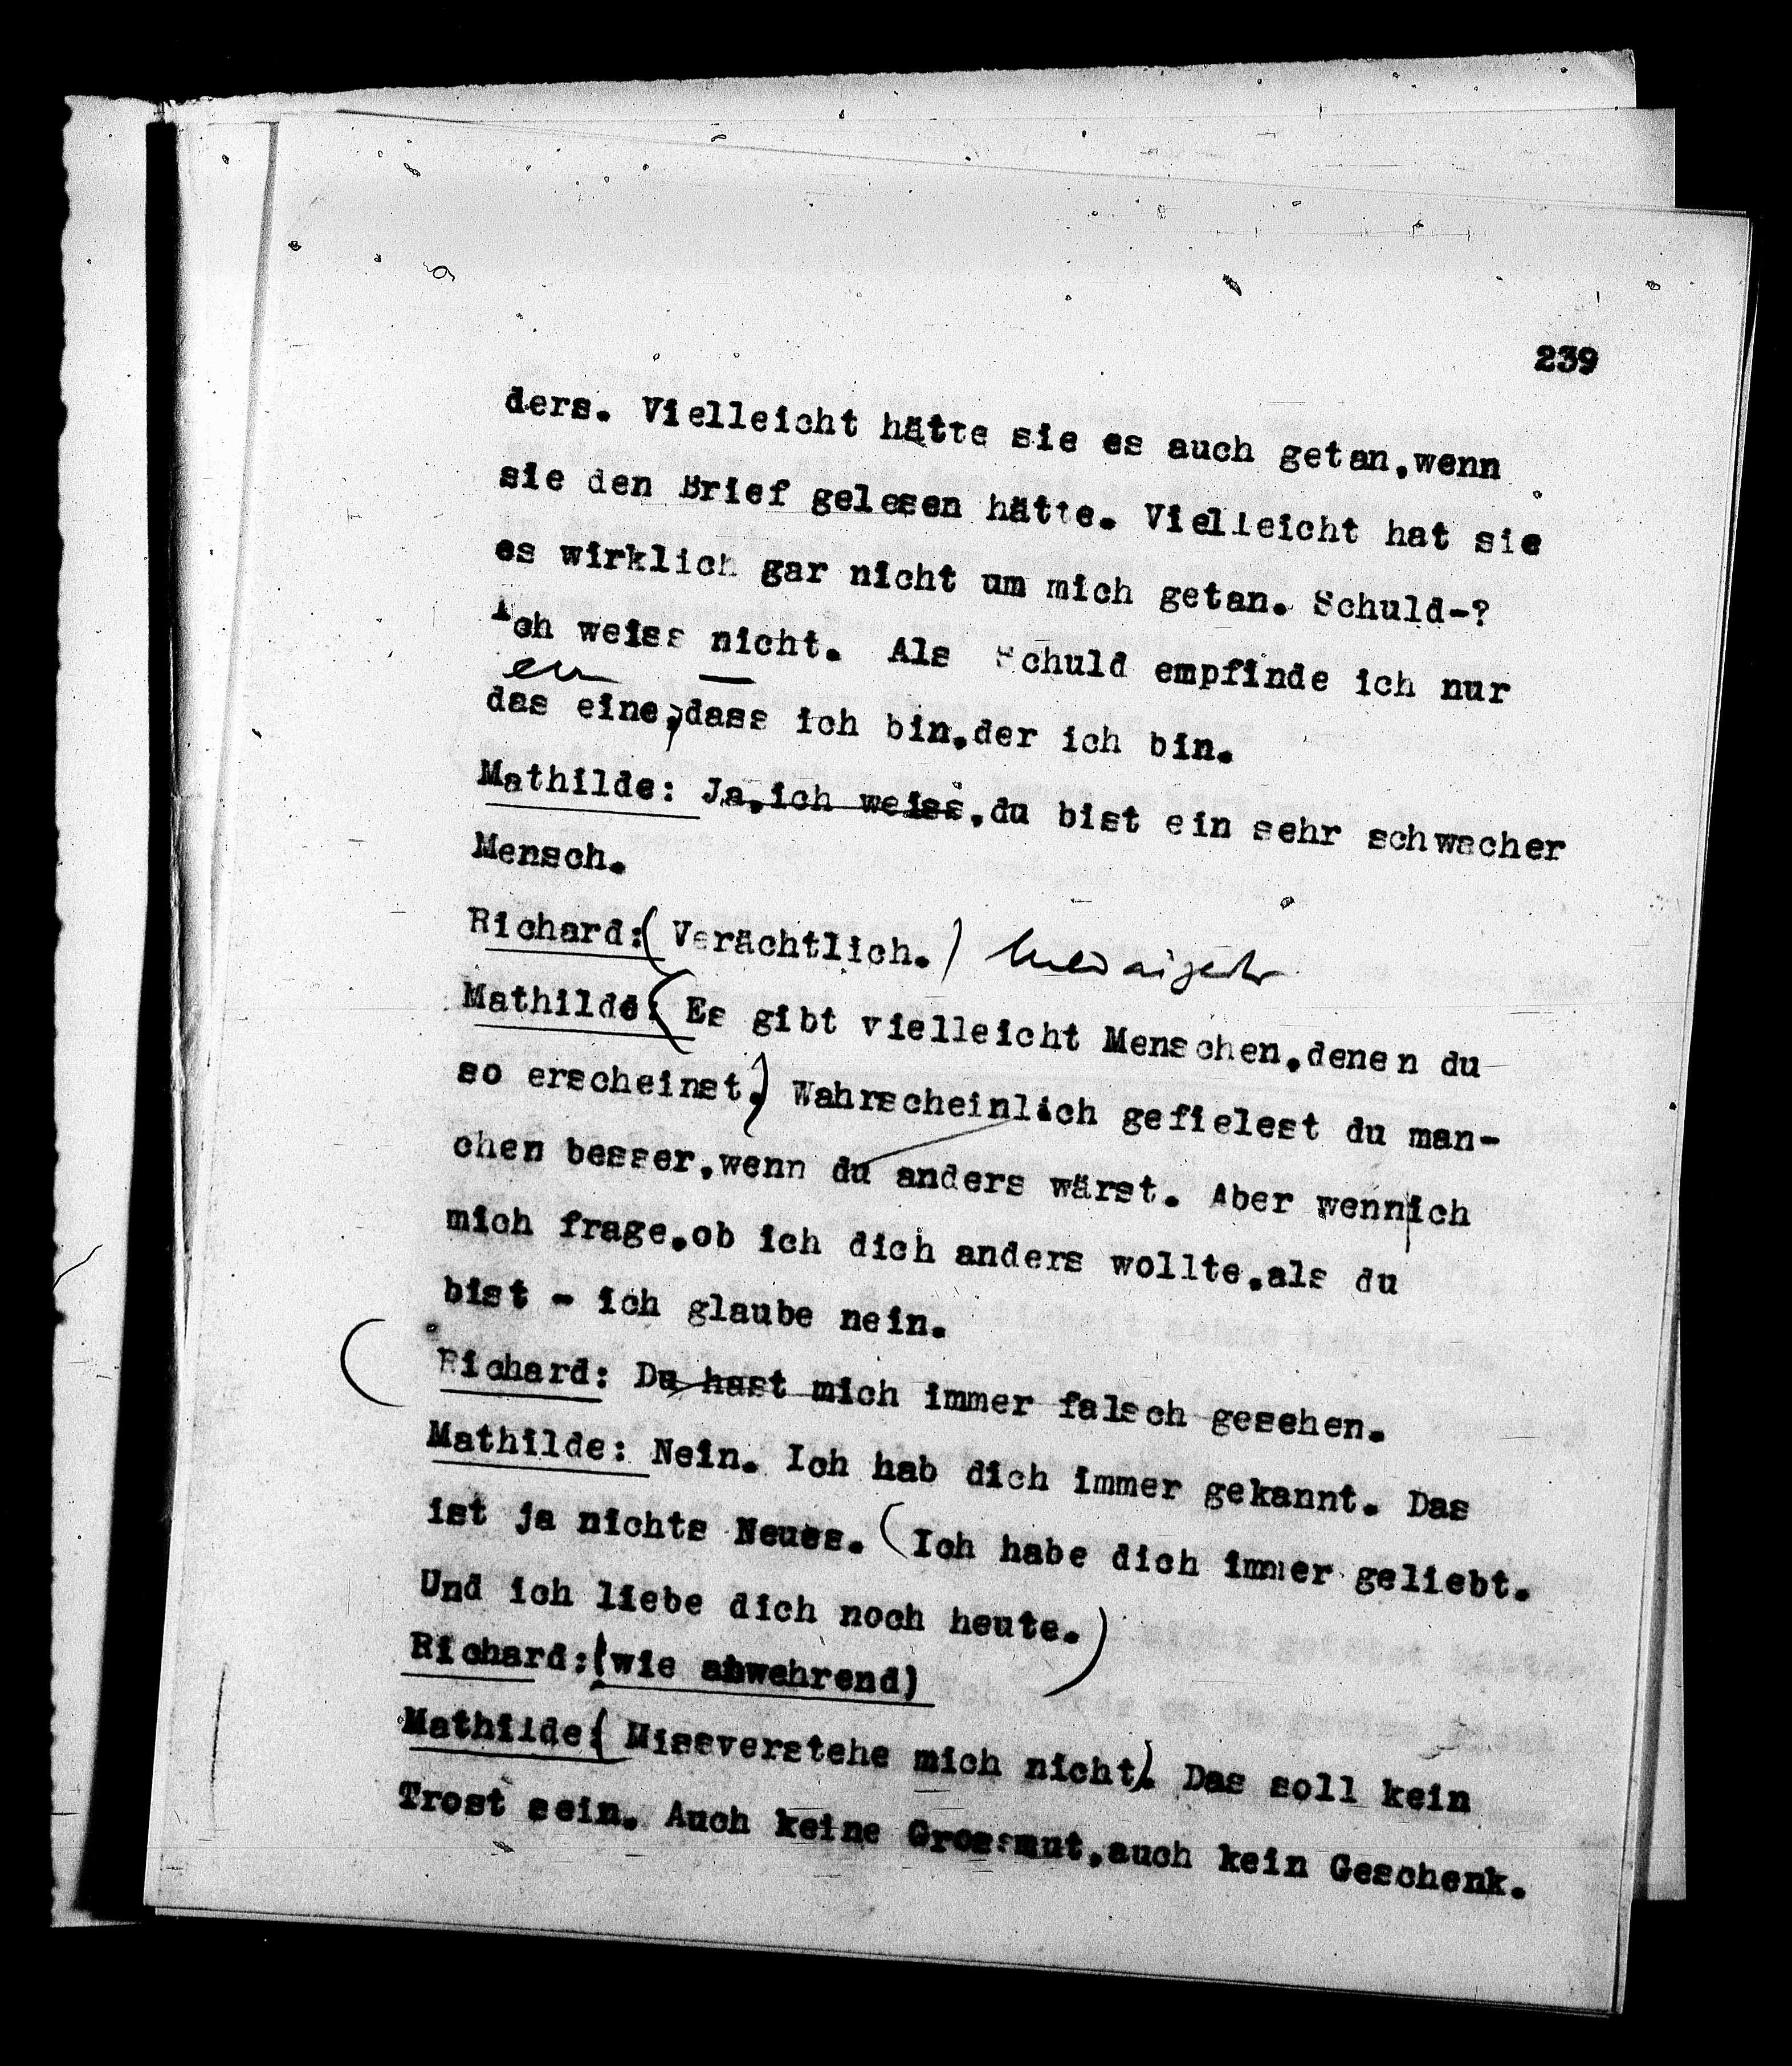 239
ders. Vielleicht hätte sie es auch getan,wenn
sie den Brief gelesen hätte. Vielleicht hat sie
es wirklich gar nicht um mich getan. Schuld-?
Ich weiss nicht. Als Schuld empfinde ich nur
das eine,dass ich bin,der ich bin.
Mathilde: Ja,ich weiss,du bist ein sehr schwacher
Mensch.
Richard:( Verächtlich.)
Mathilde:(Es gibt vielleicht Menschen,denen du
so erscheinst.) Wahrscheinlich gefielest du man-
chen besser,wenn du anders wärst. Aber wenn|ich
mich frage,ob ich dich anders wollte,als du
bist - ich glaube nein.
(Richard: Du hast mich immer falsch gesehen.
Mathilde: Nein. Ich hab dich immer gekannt. Das
ist ja nichts Neues. (Ich habe dich immer geliebt.
Und ich liebe dich noch heute.)
Richard:(wie abwehrend)
Mathilde:( Missverstehe mich nicht). Das soll kein
Trost sein. Auch keine Grossmut,auch kein Geschenk.